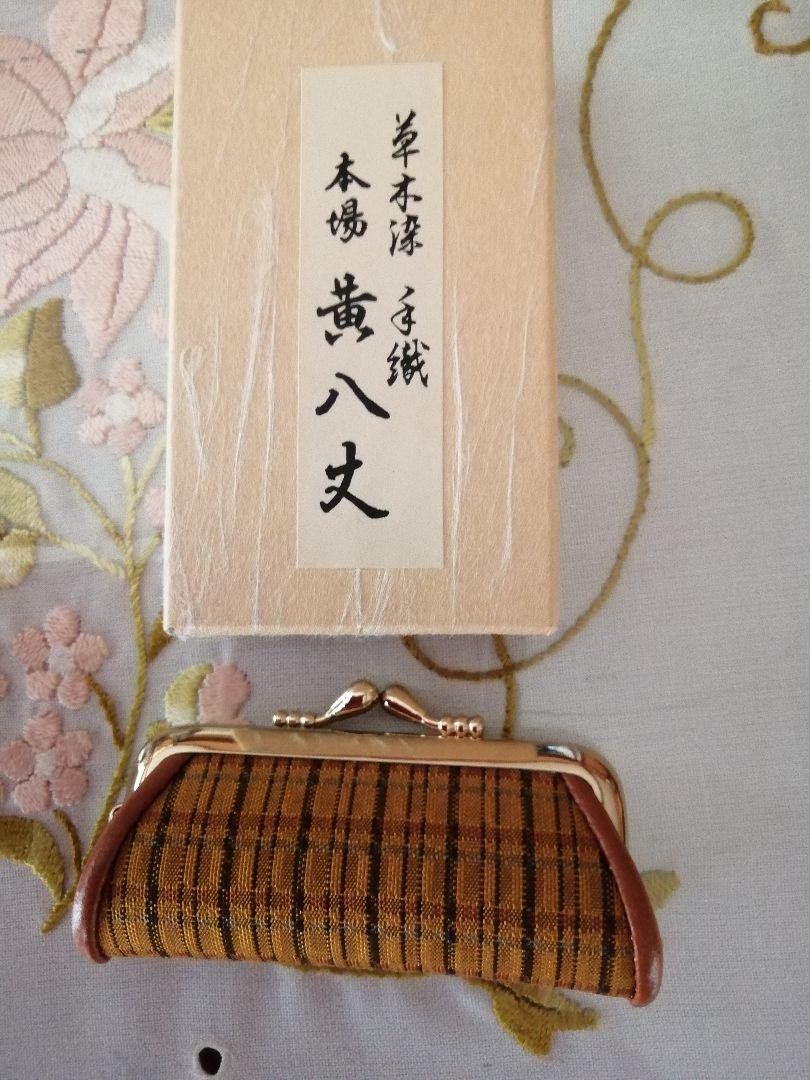 草木染 手織
本場 黄八丈